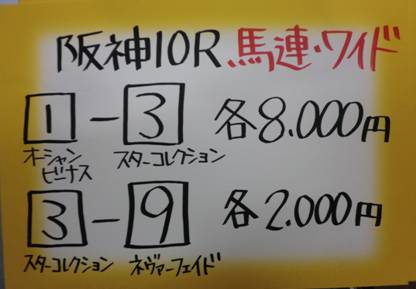 阪神10R 馬連・ワイド
1-3 各8.000円
オーシャンビーナス スターコレクション
3-9 各2.000円
スターコレクション ネヴァーフェイド